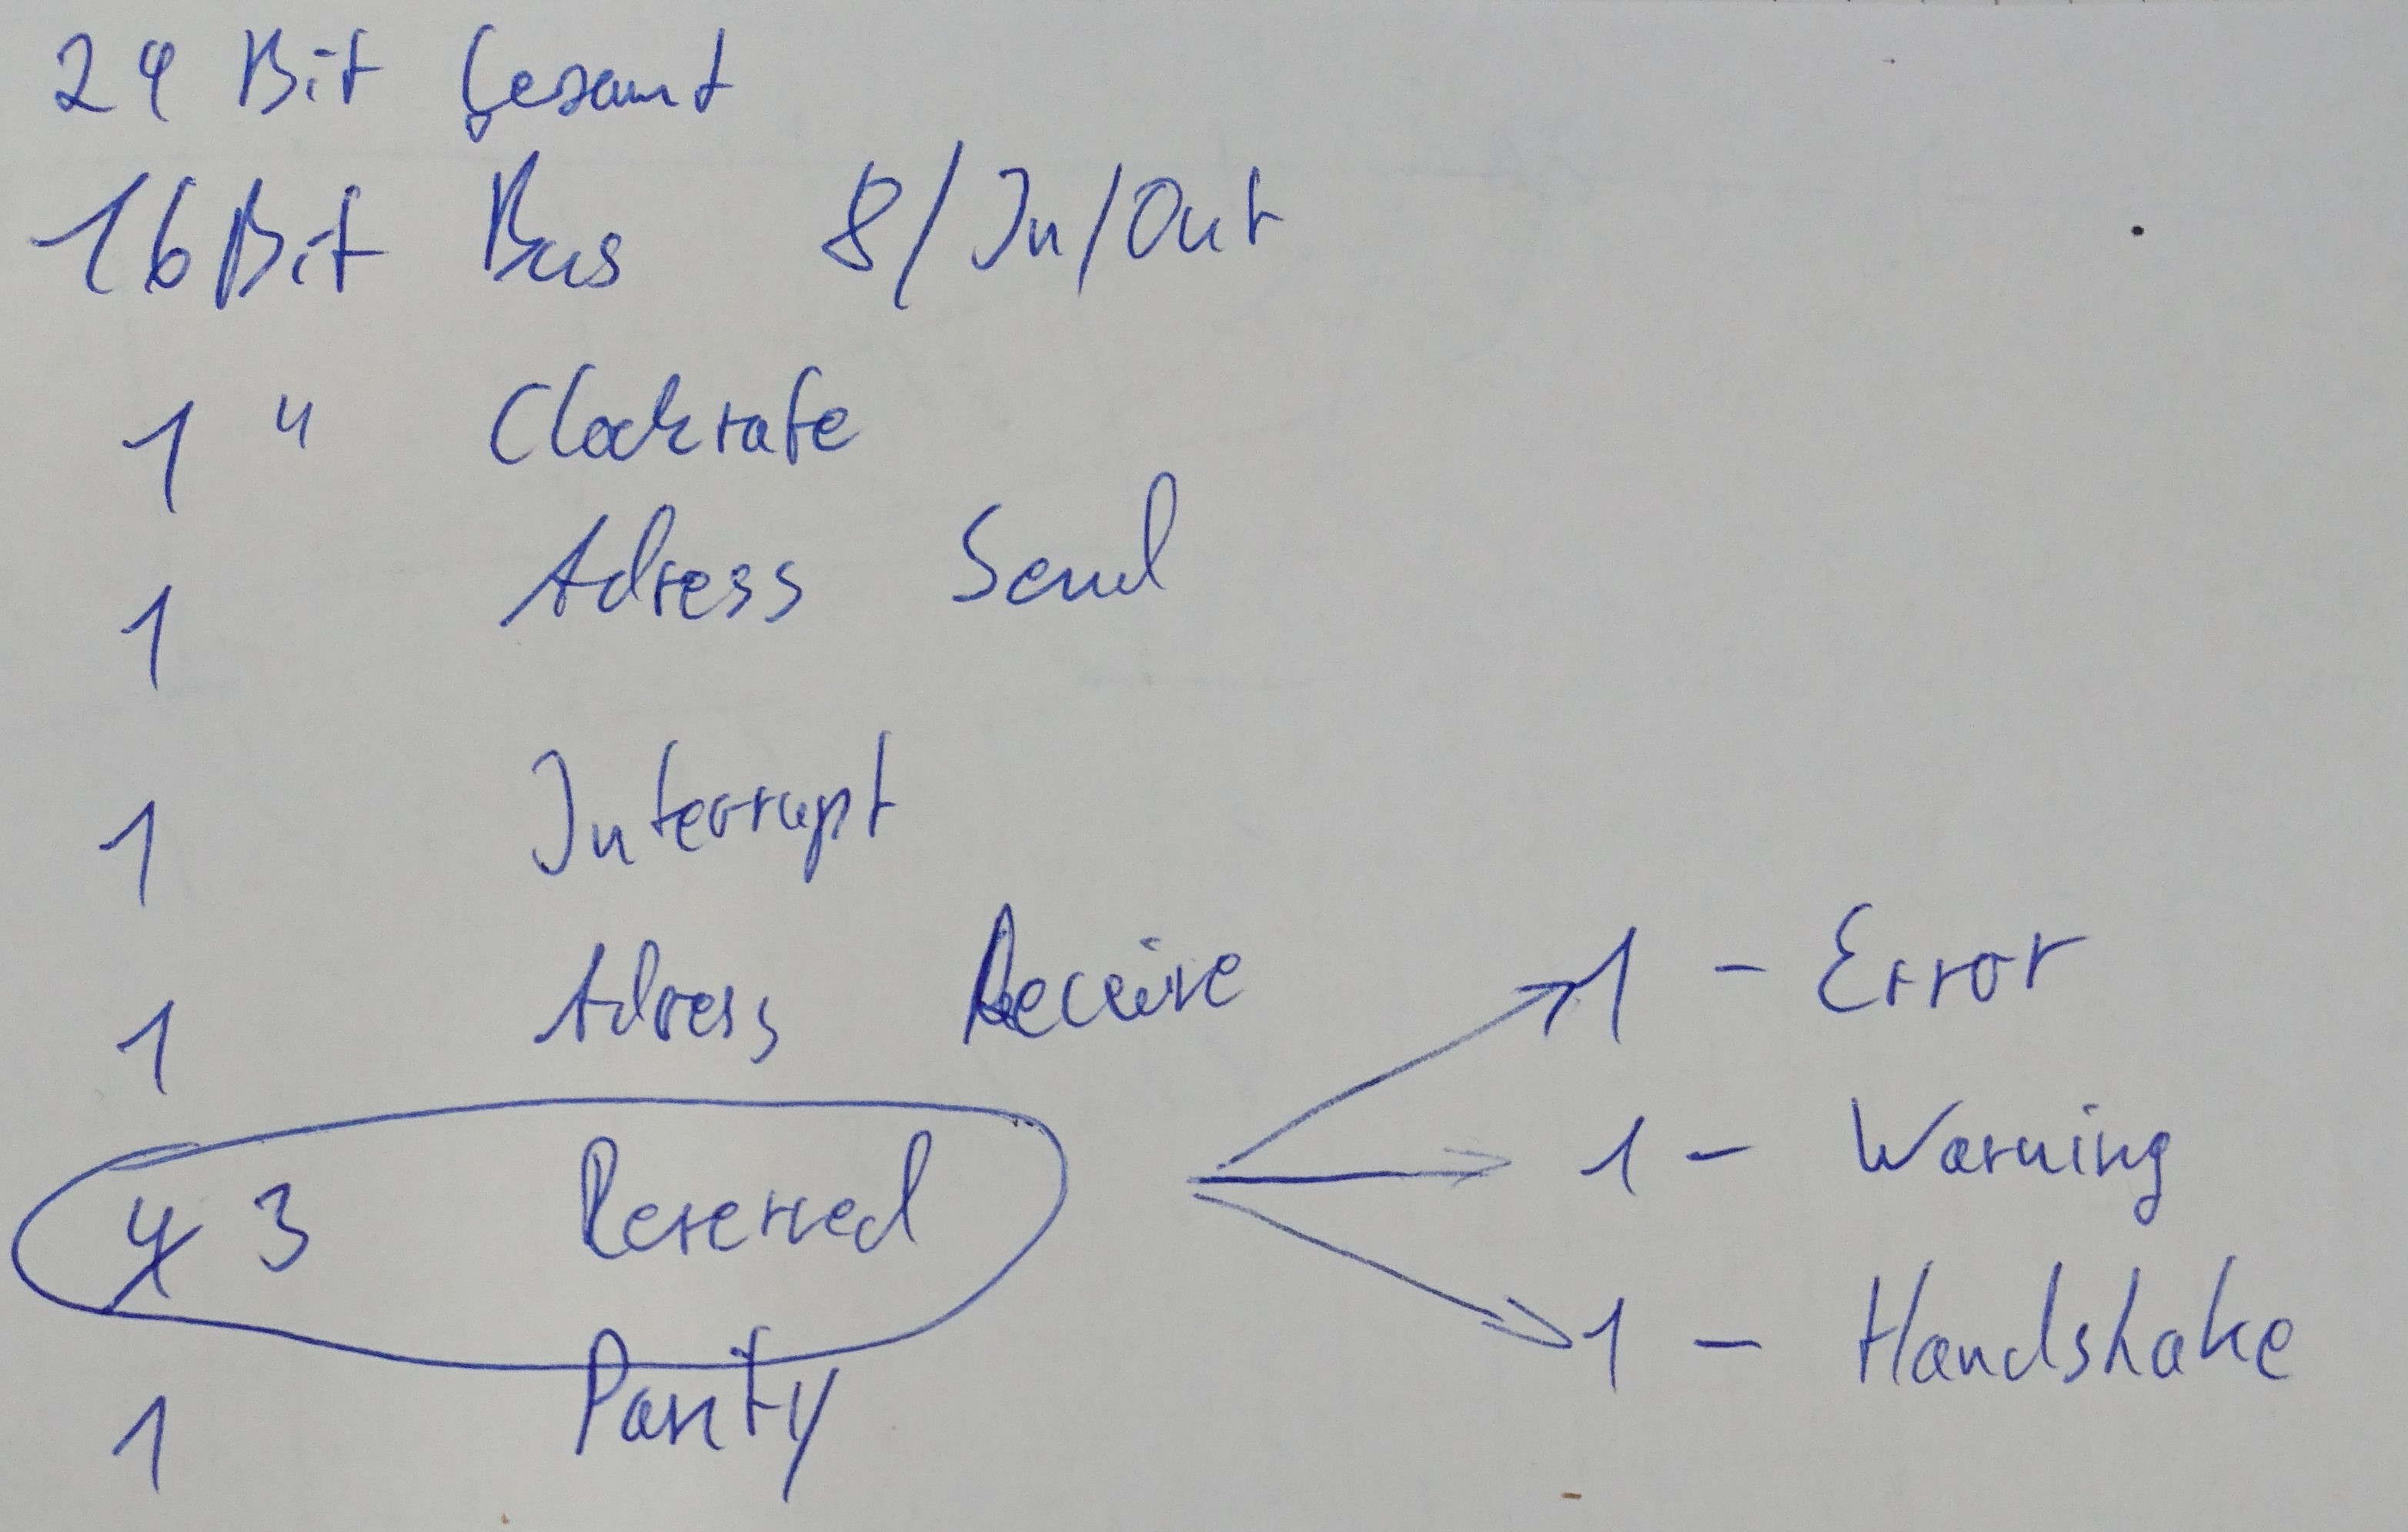 24 Bit Gesamt
16 Bit Bus 8/In/Out
1 " Clockrate
1 Adress Send
1 Interrupt
1 Adress Receive
4 3 Reserved
1 Parity
1 - Error
1 - Warning
1 - Handshake